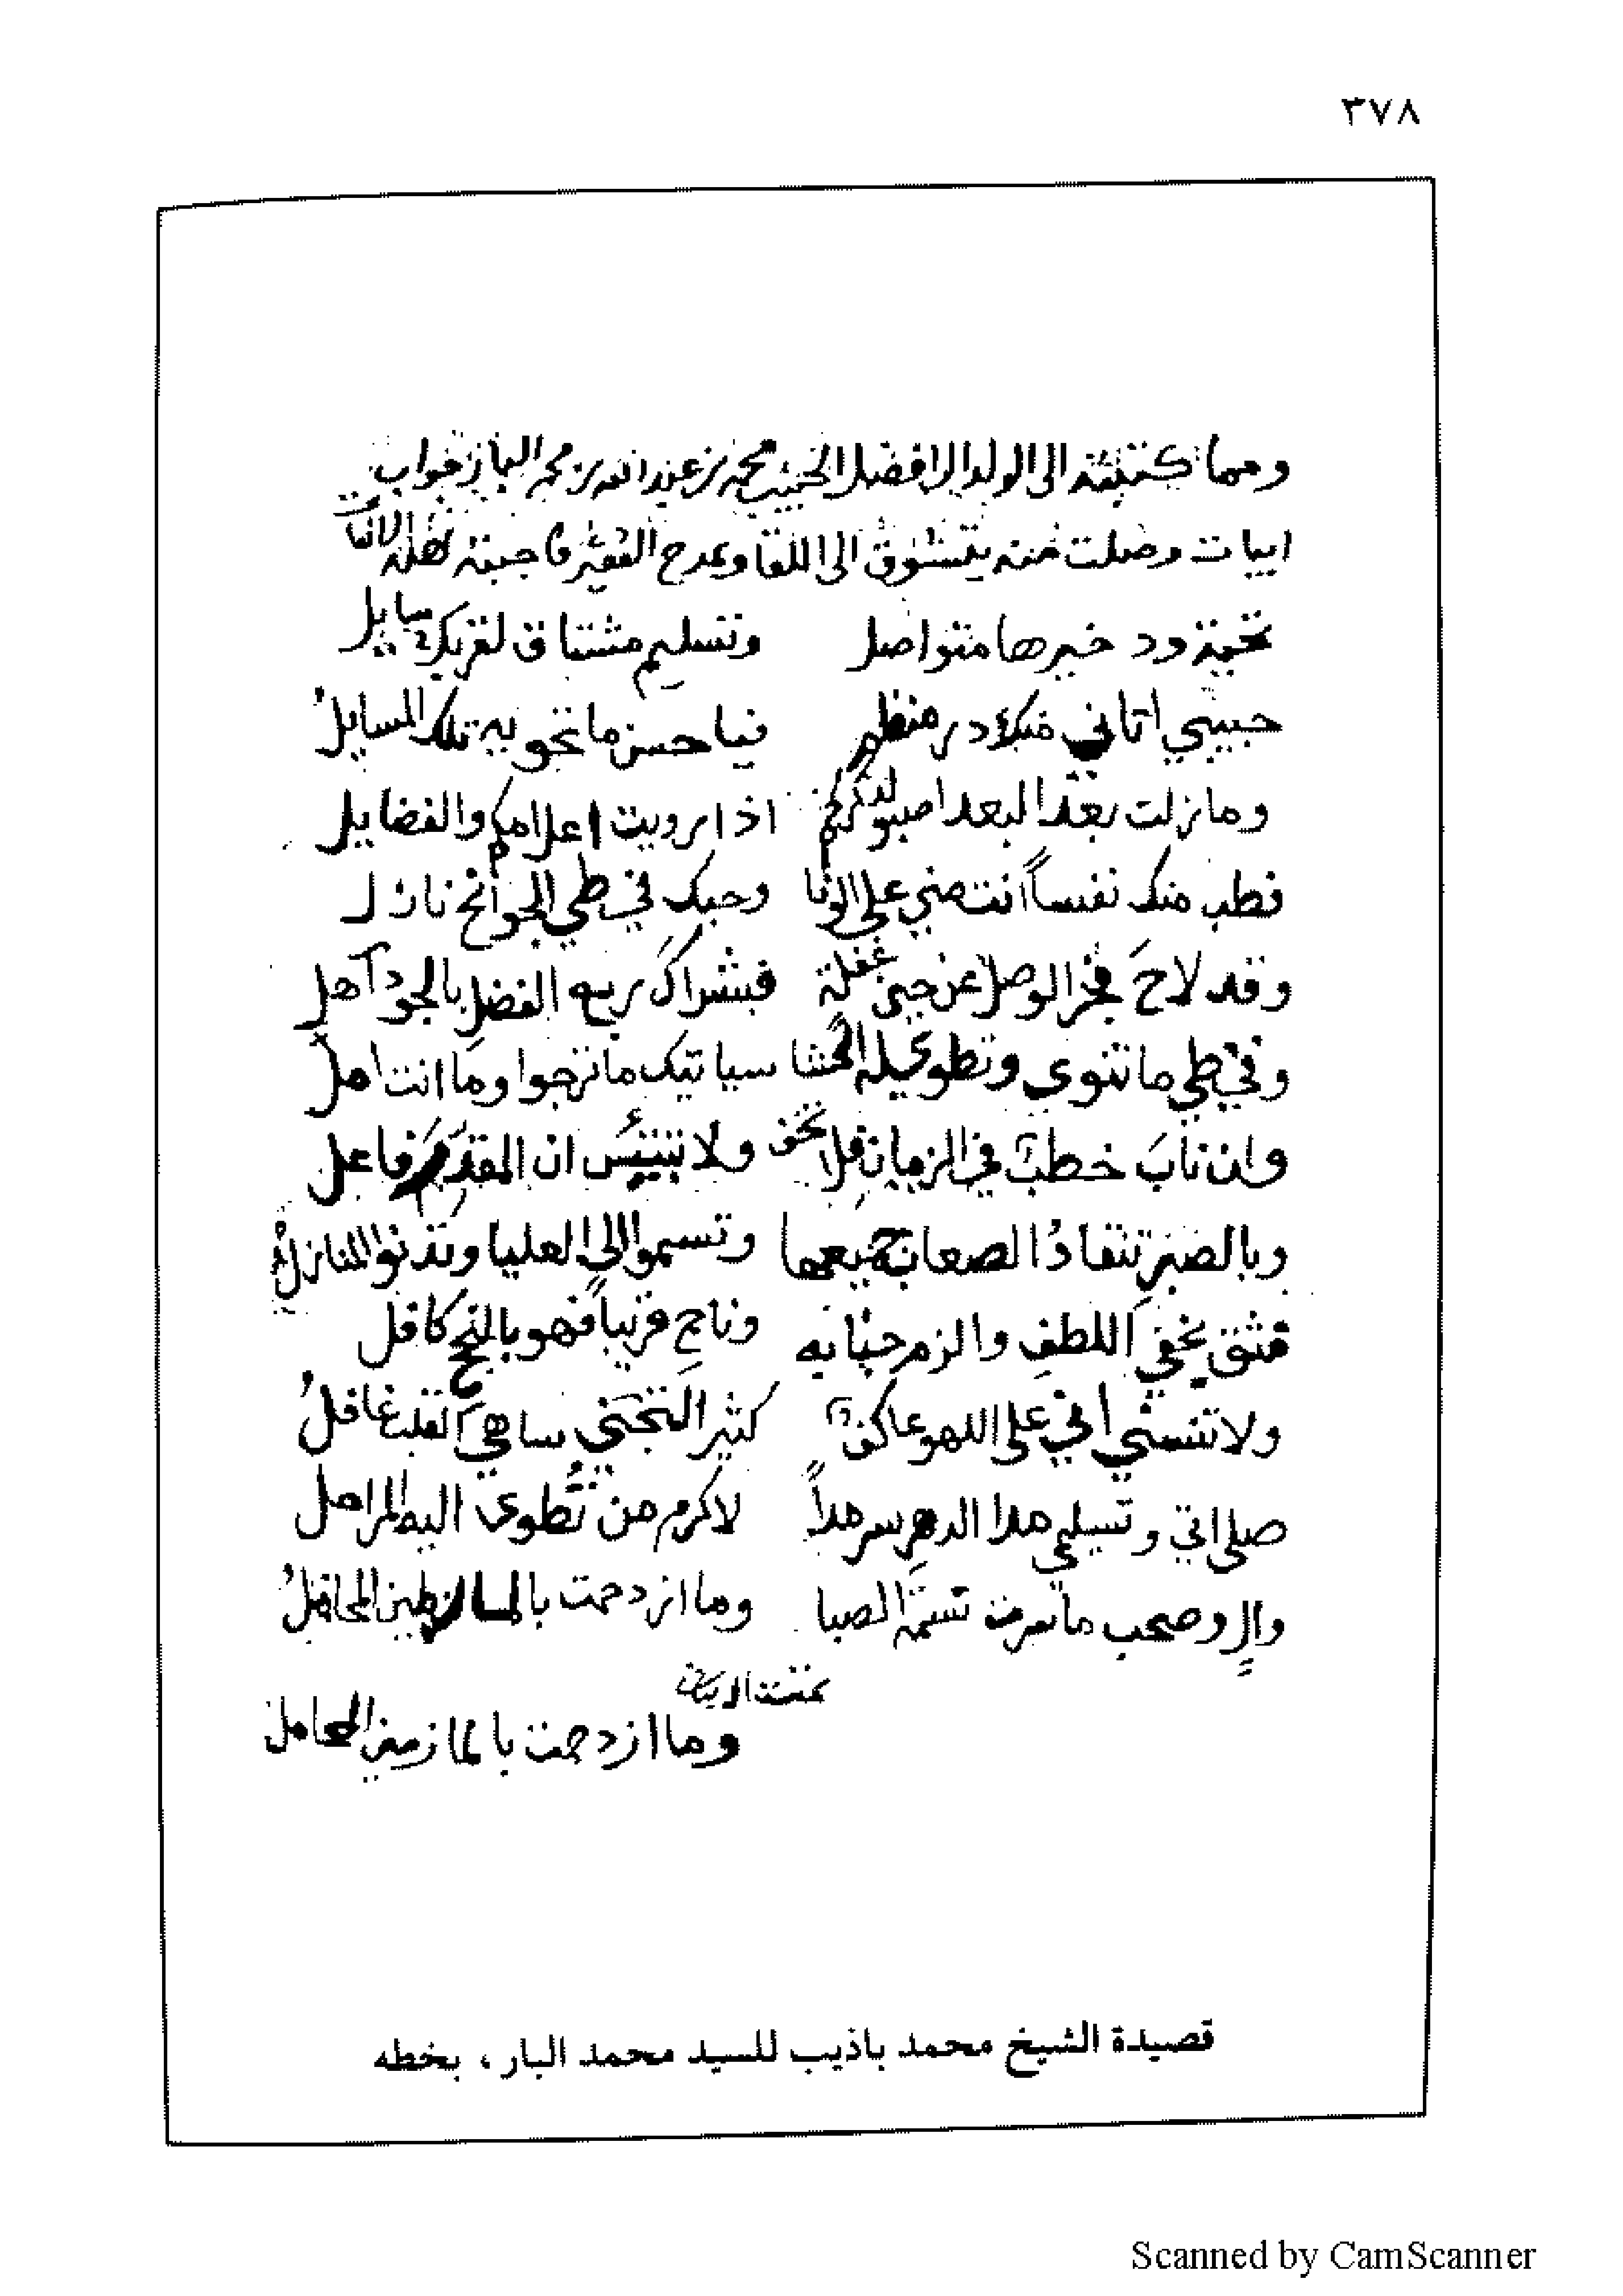 ٣٧٨
ومما كتبته الى الولد الافضل الحبيب محمد بن عبد الله بن محمد البار جواب
ابيات وصلت منه يتشوق الى اللقا ويمدح الفقير فاجبته بهذه الابيات
تحية ود خيرها متواصل وتسليم مشتاق لقربك سايل
حبيبي اتاني منك در منظم فيا حسن ما تحويه تلك المسايلُ
وما زلت بعد البعد اصبو لذكركم اذا رويت اعلامكم والفضايل
فطب منك نفساً انت مني على الوفا وحبك في طي الجوانح نازل
وقد لاحَ فجر الوصل عن حين غفلة فبشراكَ ربع الفضلِ بالجود آهل
وفي طي ما تنوي وتطوي له الحشا سياتيك ما ترجوا وما انت امل
وان نابَ خطبٌ في الزمان فلا تخف ولا تبتئس ان المقدّر فاعل
وبالصبرِ تنقادُ الصعاب جميعها وتسموا الى العليا وتدنوا المنازلُ
فثق بخفي اللطفِ والزم جنابه وناجِ قريباً فهو بالنجح كافل
ولا تنسني اني على اللهو عاكفٌ كثير التجني ساهي القلب غافلُ
صلاتي وتسليمي مدا الدهرِ سرمداً لاكرم من تُطوى اليه المراحل
والٍ وصحب ما سرت نسمة الصبا وما ازدحمت بالمازمين المحافلُ
تمت الابيات
وما ازدحمت بالمازمين المحامل
قصيدة الشيخ محمد باذيب للسيد محمد البار ، بخطه
Scanned by CamScanner